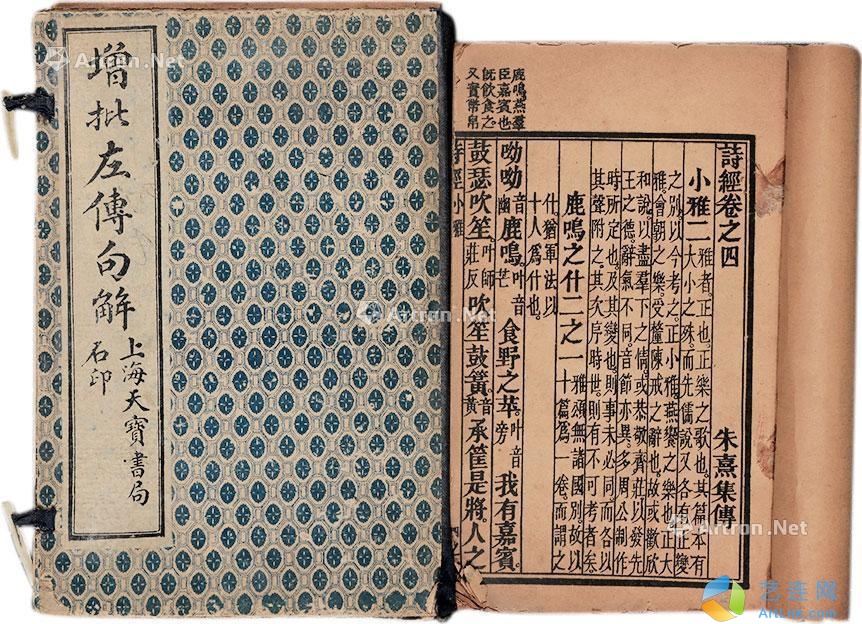 增批左傳句解
上海天寶書局
石印
鹿鳴燕羣
臣嘉賓也
既飲食之
又實幣帛
詩經卷之四 朱熹集傳
小雅二 雅者正也。正樂之歌也。其篇本有
大小之殊。而先儒說又各有正變
之別。以今考之。正小雅燕饗之樂也。正大
雅會朝之樂。受釐陳戒之辭也。故或歡欣
和說以盡羣下之情。或恭敬齊莊以發先
王之德。辭氣不同。音節亦異。多周公制作
時所定也。及其變也。則事未必同。而各以
其聲附之。其次序時世。則有不可考者矣。
鹿鳴之什二之一 雅頌無諸國別。故以
十篇爲一卷。而謂之
什。猶軍法以
十人爲什也。
呦呦音幽鹿鳴叶音芒食野之苹叶音旁我有嘉賓。
鼓瑟吹笙叶師莊反吹笙鼓簧音黃承筐是將。人之
詩經小雅
Artron.Net
Artron.Net
Artron.Net
Artron.Net
艺连网